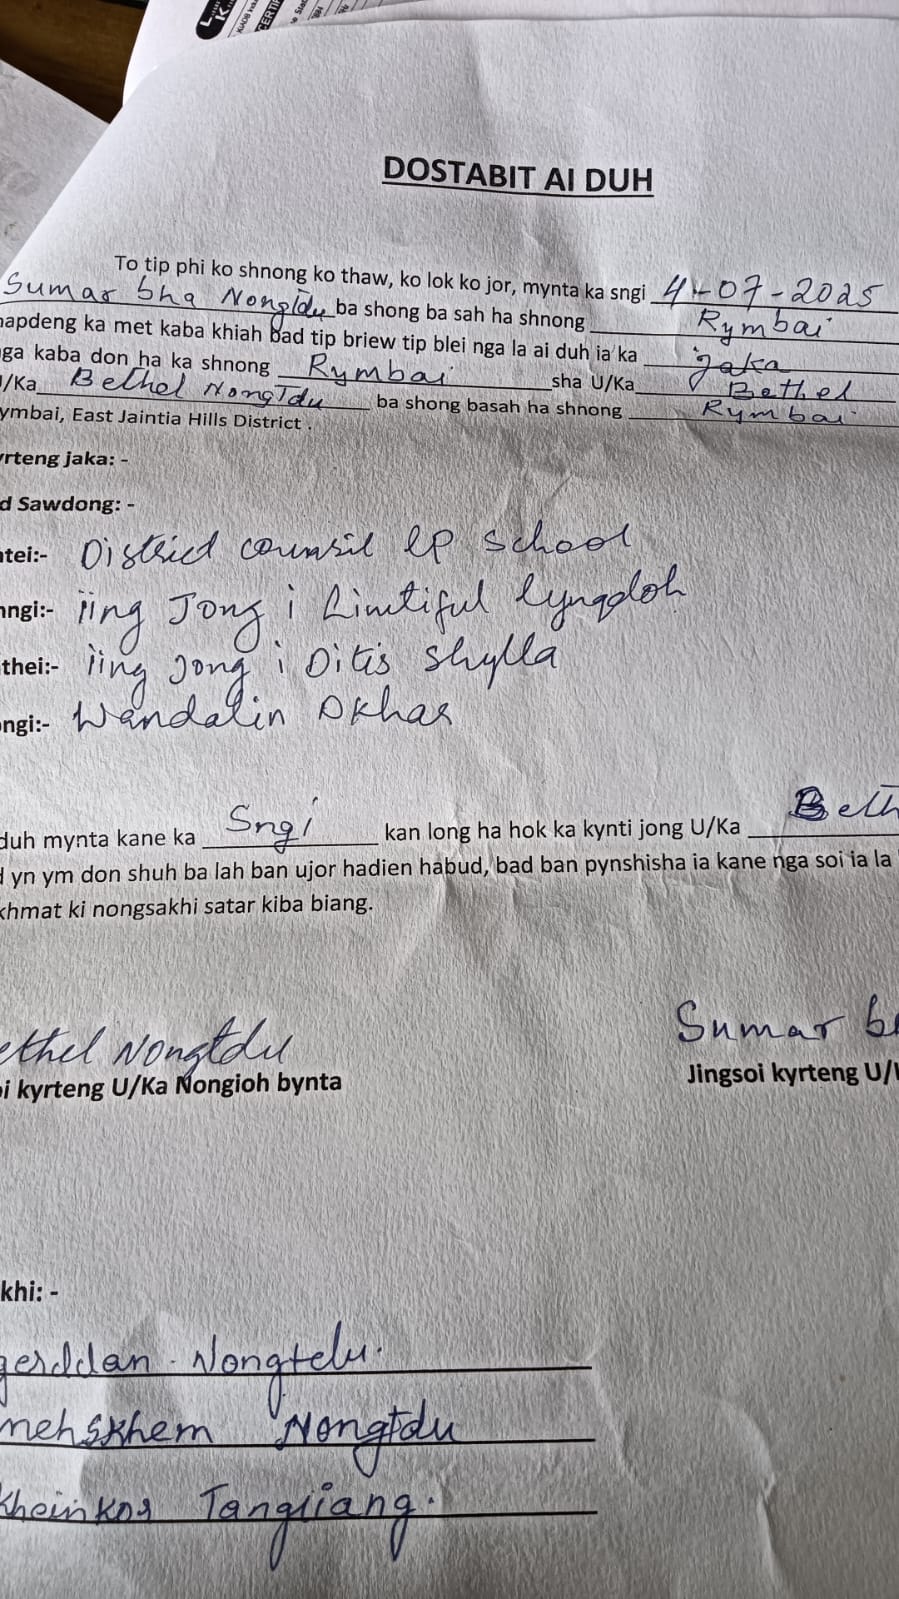 KIADB
CERTIF
DOSTABIT AI DUH
To tip phi ko shnong ko thaw, ko lok ko jor, mynta ka sngi 4-07-2025
Sumar bha Nongtdu ba shong ba sah ha shnong Rymbai
hapdeng ka met kaba khiah bad tip briew tip blei nga la ai duh ia ka jaka
nga kaba don ha ka shnong Rymbai sha U/Ka Bethel
U/Ka Bethel NongTdu ba shong basah ha shnong Rymbai
ymbai, East Jaintia Hills District .
yrteng jaka: -
d Sawdong: -
tei:- District counsil LP school
ngi:- iing Jong i Limtiful lyngdoh
thei:- iing Jong i Ditis Shylla
ngi:- Wandalin Dkhar
duh mynta kane ka Sngi kan long ha hok ka kynti jong U/Ka Beth
d yn ym don shuh ba lah ban ujor hadien habud, bad ban pynshisha ia kane nga soi ia la
khmat ki nongsakhi satar kiba biang.
ethel Nongtdu
Sumar b
oi kyrteng U/Ka Nongioh bynta
Jingsoi kyrteng U/
khi: -
gerddan Nongtdu.
mehskhem Nongtdu
kheinkor Tangliang.